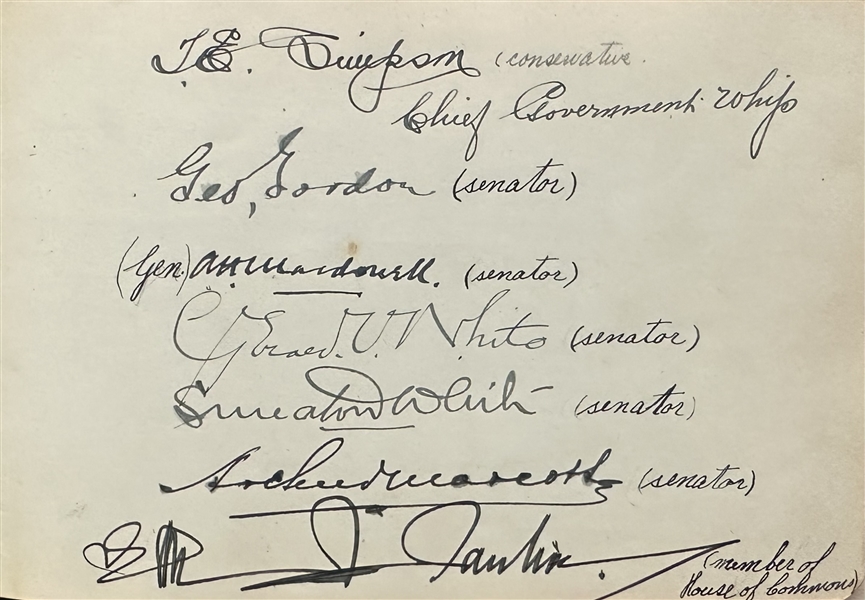 T.E. Simpson (conservative.
Chief Government Whip
Geo, Gordon (senator)
(Gen.) A.H. Macdonell. (senator)
Gerald V. White (senator)
Smeaton White (senator)
(senator)
(member of
House of Commons)